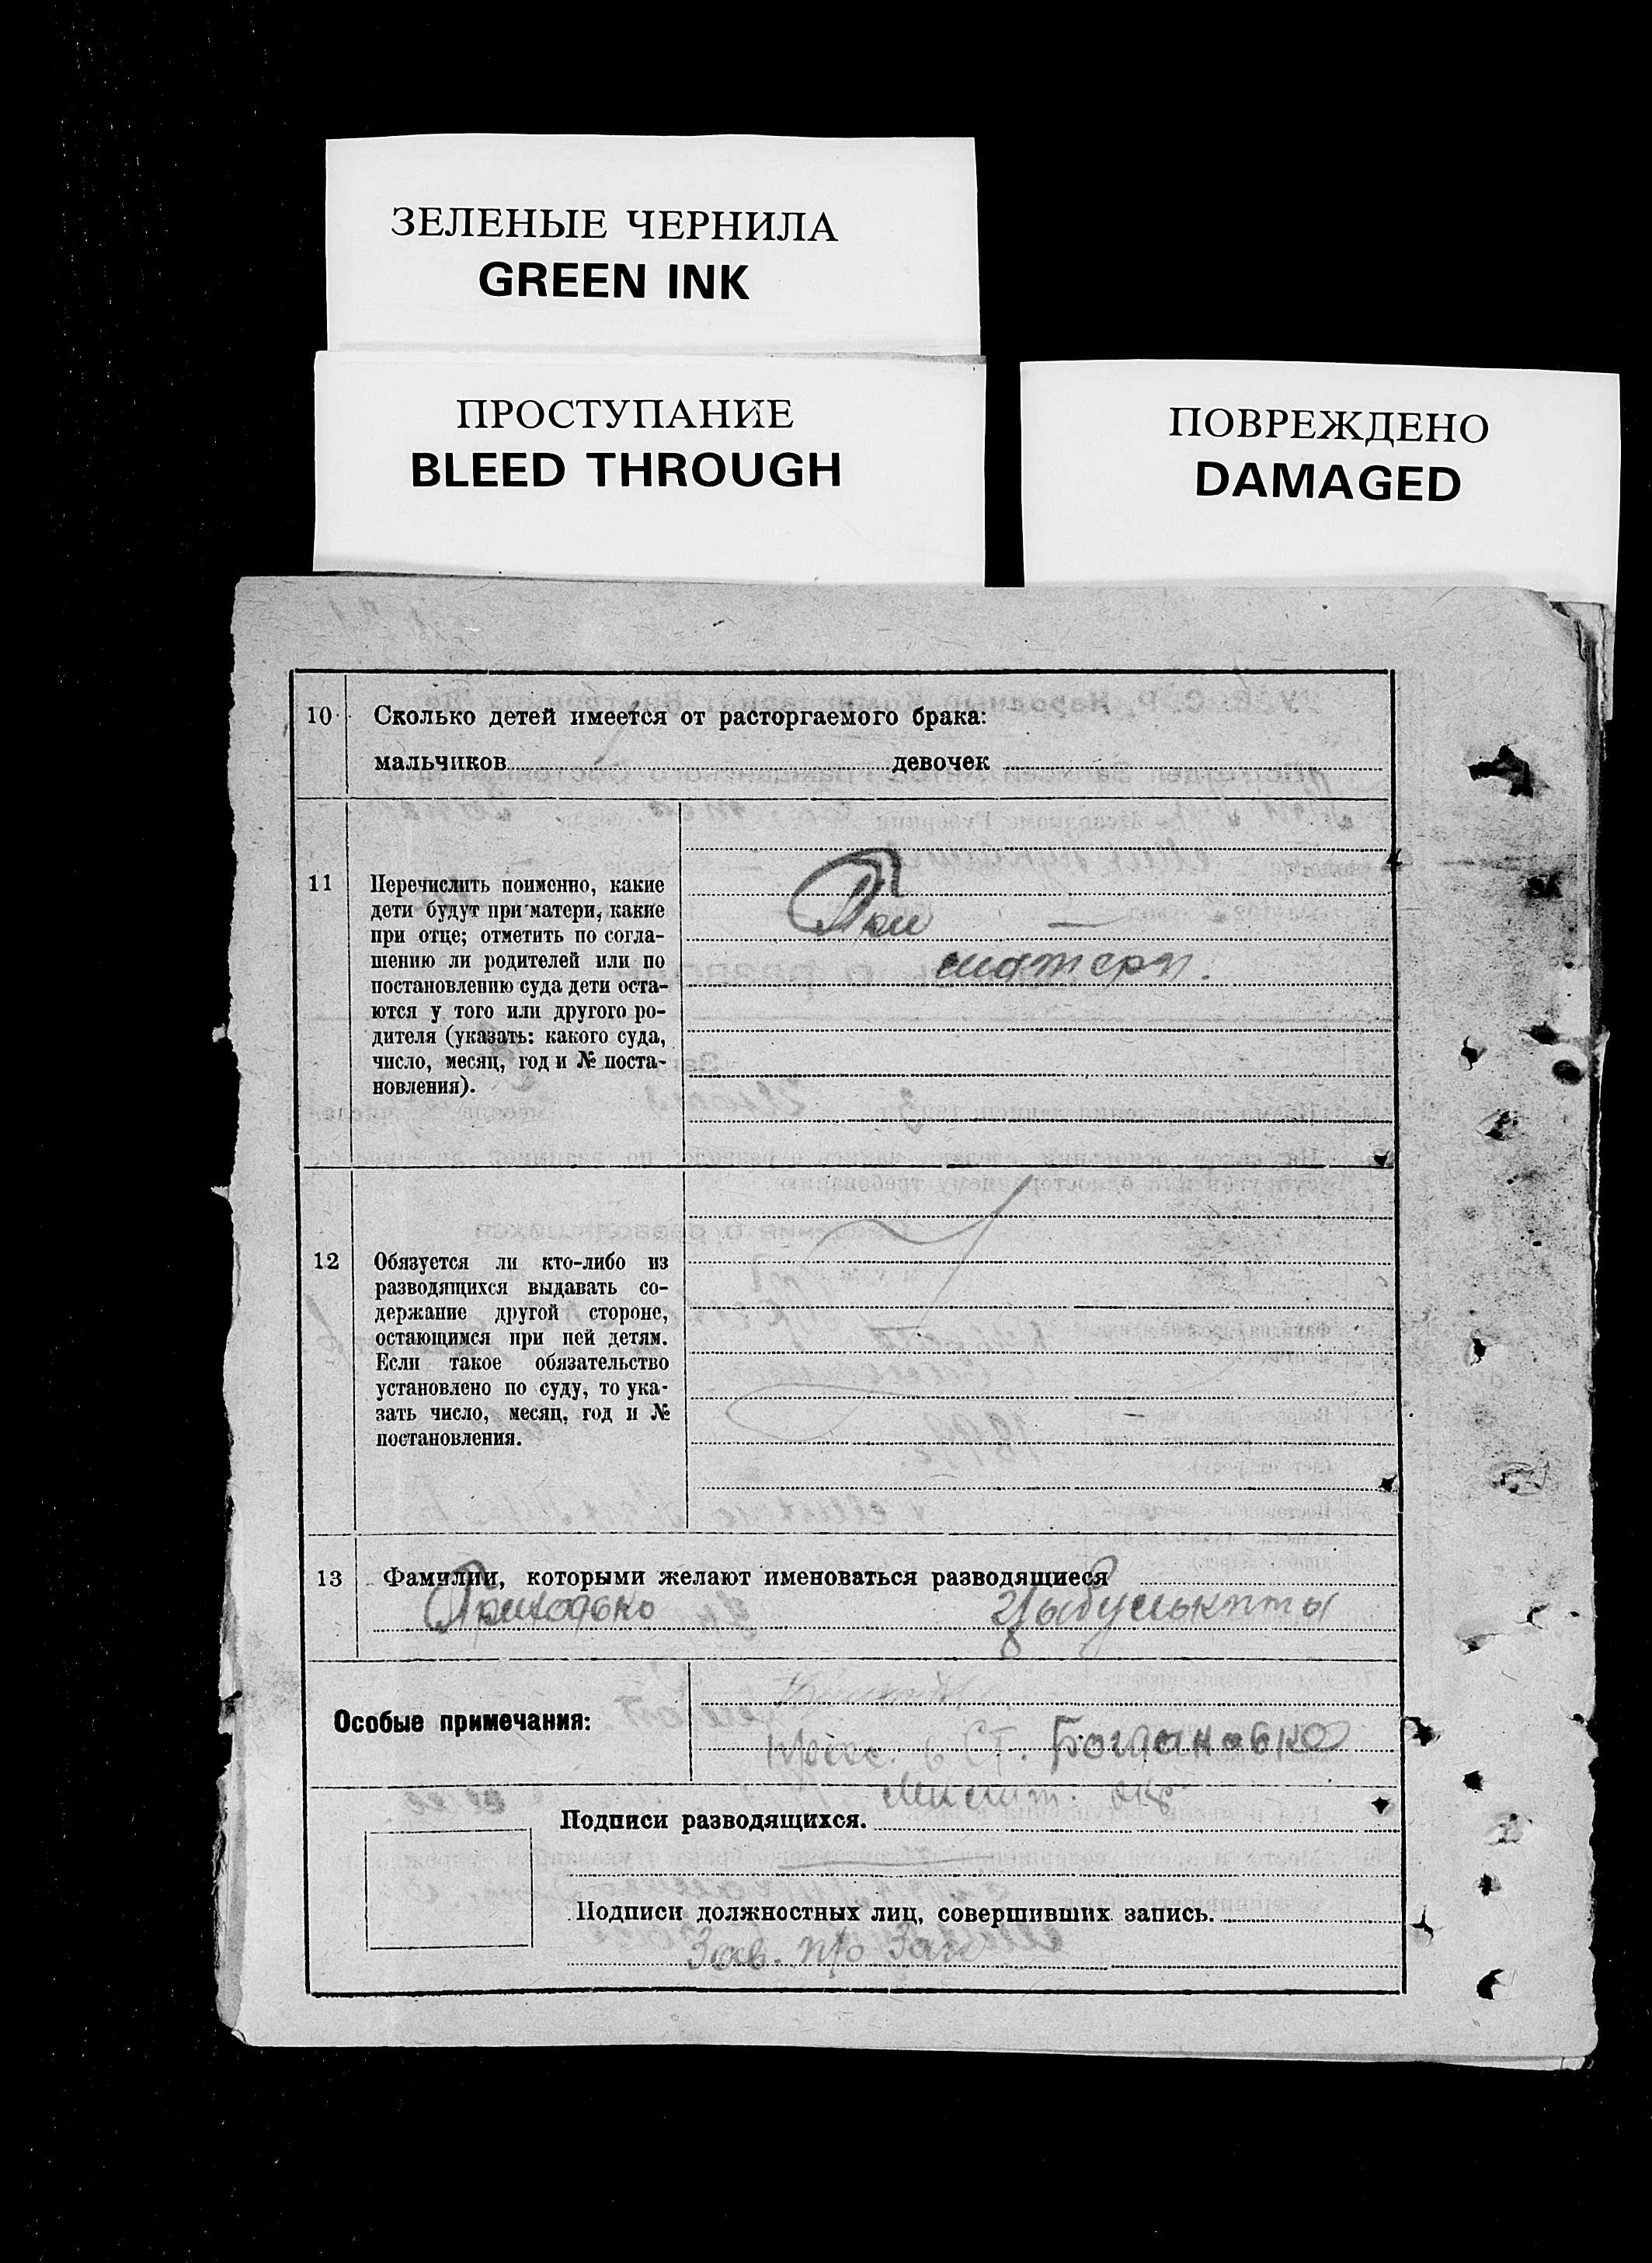 ЗЕЛЕНЫЕ ЧЕРНИЛА
GREEN INK
ПРОСТУПАНИЕ
BLEED THROUGH
ПОВРЕЖДЕНО
DAMAGED
10 Сколько детей имеется от расторгаемого брака:
мальчиков девочек
11 Перечислить поименно, какие
дети будут при матери, какие
при отце; отметить по согла-
шению ли родителей или по
постановлению суда дети оста-
ются у того или другого ро-
дителя (указать: какого суда,
число, месяц, год и № поста-
новления).
При
матери.
12 Обязуется ли кто-либо из
разводящихся выдавать со-
держание другой стороне,
остающимся при ней детям.
Если такое обязательство
установлено по суду, то ука-
зать число, месяц, год и №
постановления.
13 Фамилии, которыми желают именоваться разводящиеся
Приходько
Особые примечания:
в ст. Богдановко
Подписи разводящихся.
Подписи должностных лиц, совершивших запись.
Зав. п/о Заг